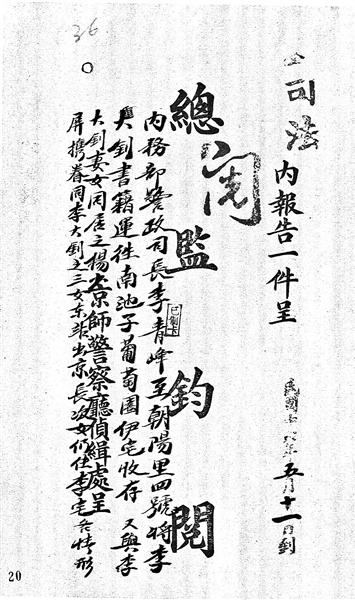 36
司法
內報告一件呈
五月十一日到
總監鈞閱
閱
已製卡
內務部警政司長李青峰至朝陽里四號將李
大釗書籍運往南池子葡萄園伊宅收存 又與李
大釗妻女同居之楊
京師警察廳偵緝處呈
屏攜眷同李大釗之三女出京長次女仍住李宅各情形
20